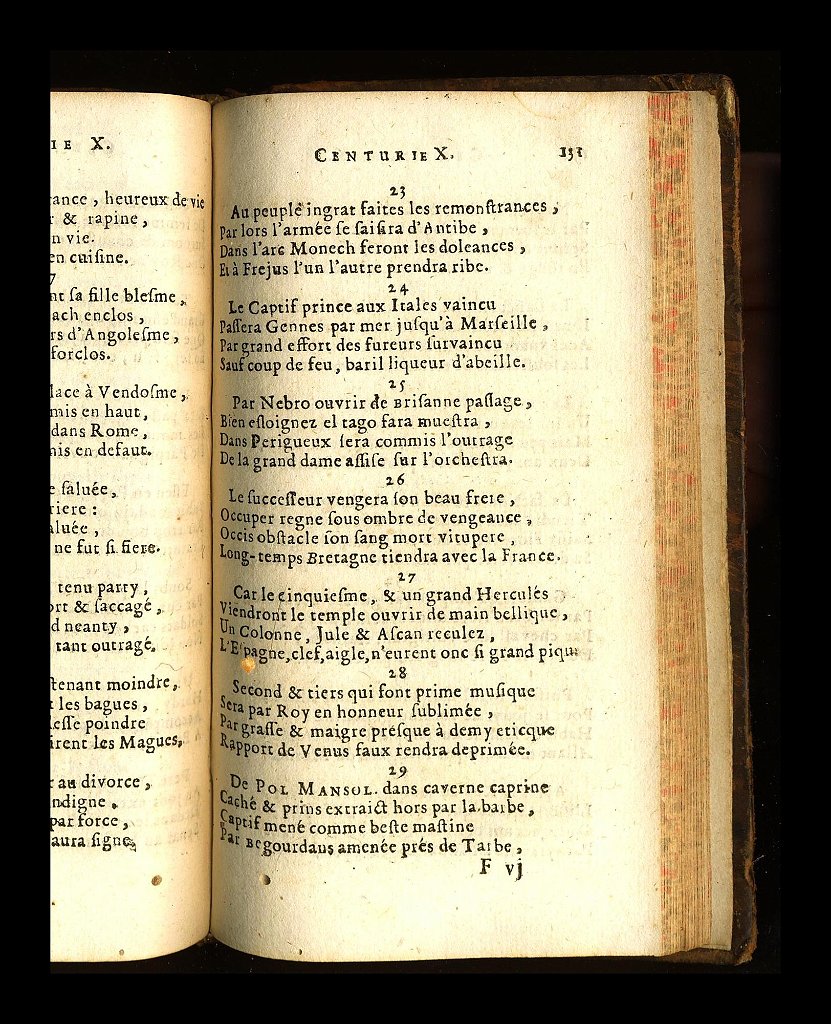 IE X.
rance, heureux de vie
r & rapine,
n vie.
en cuiſine.
7
nt ſa fille bleſme,
ach enclos,
rs d'Angoleſme,
forclos.
lace à Vendoſme,
mis en haut,
dans Rome,
nis en defaut.
e ſaluée,
riere :
aluée,
ne fut ſi fiere.
tenu party,
ort & ſaccagé,
d neanty,
tant outragé.
tenant moindre,
les bagues,
leſſe poindre
irent les Magues,
r au divorce,
ndigne,
par force,
aura ſigne,
CENTURIE X. 131
23
Au peuple ingrat faites les remonſtrances,
Par lors l'armée ſe ſaiſira d'Antibe,
Dans l'arc Monech feront les doleances,
Et à Frejus l'un l'autre prendra ribe.
24
Le Captif prince aux Itales vaincu
Paſſera Gennes par mer juſqu'à Marſeille,
Par grand effort des fureurs ſurvaincu
Sauf coup de feu, baril liqueur d'abeille.
25
Par Nebro ouvrir de Briſanne paſſage,
Bien eſloignez el tago fara mueſtra,
Dans Perigueux ſera commis l'outrage
De la grand dame aſſiſe ſur l'orcheſtra.
26
Le ſucceſſeur vengera ſon beau frere,
Occuper regne ſous ombre de vengeance,
Occis obſtacle ſon ſang mort vitupere,
Long-temps Bretagne tiendra avec la France.
27
Car le cinquieſme, & un grand Herculés
Viendront le temple ouvrir de main bellique,
Un Colonne, Jule & Aſcan reculez,
L'Eſpagne, clef, aigle, n'eurent onc ſi grand pique
28
Second & tiers qui font prime muſique
Sera par Roy en honneur ſublimée,
Par graſſe & maigre preſque à demy eticque
Rapport de Venus faux rendra deprimée.
29
De POL MANSOL. dans caverne caprine
Caché & prins extraict hors par la barbe,
Captif mené comme beſte maſtine
Par Begourdans amenée prés de Tarbe,
F vj